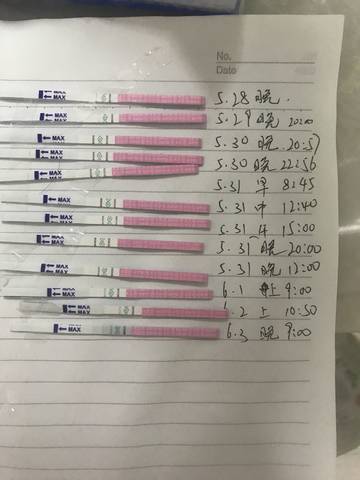 No.
Date
MAX 5.28 晚.
MAX 5.29 晚 20:00
MAX 5.30 晚 20:57
MAX 5.30 晚 22:56
MAX 5.31 早 8:45
MAX 5.31 中 12:40
MAX 5.31 下 15:00
MAX 5.31 晚 20:00
MAX 5.31 晚 12:00
MAX 6.1 上 9:00
MAX 6.2 上 10:50
MAX 6.3 晚 9:00